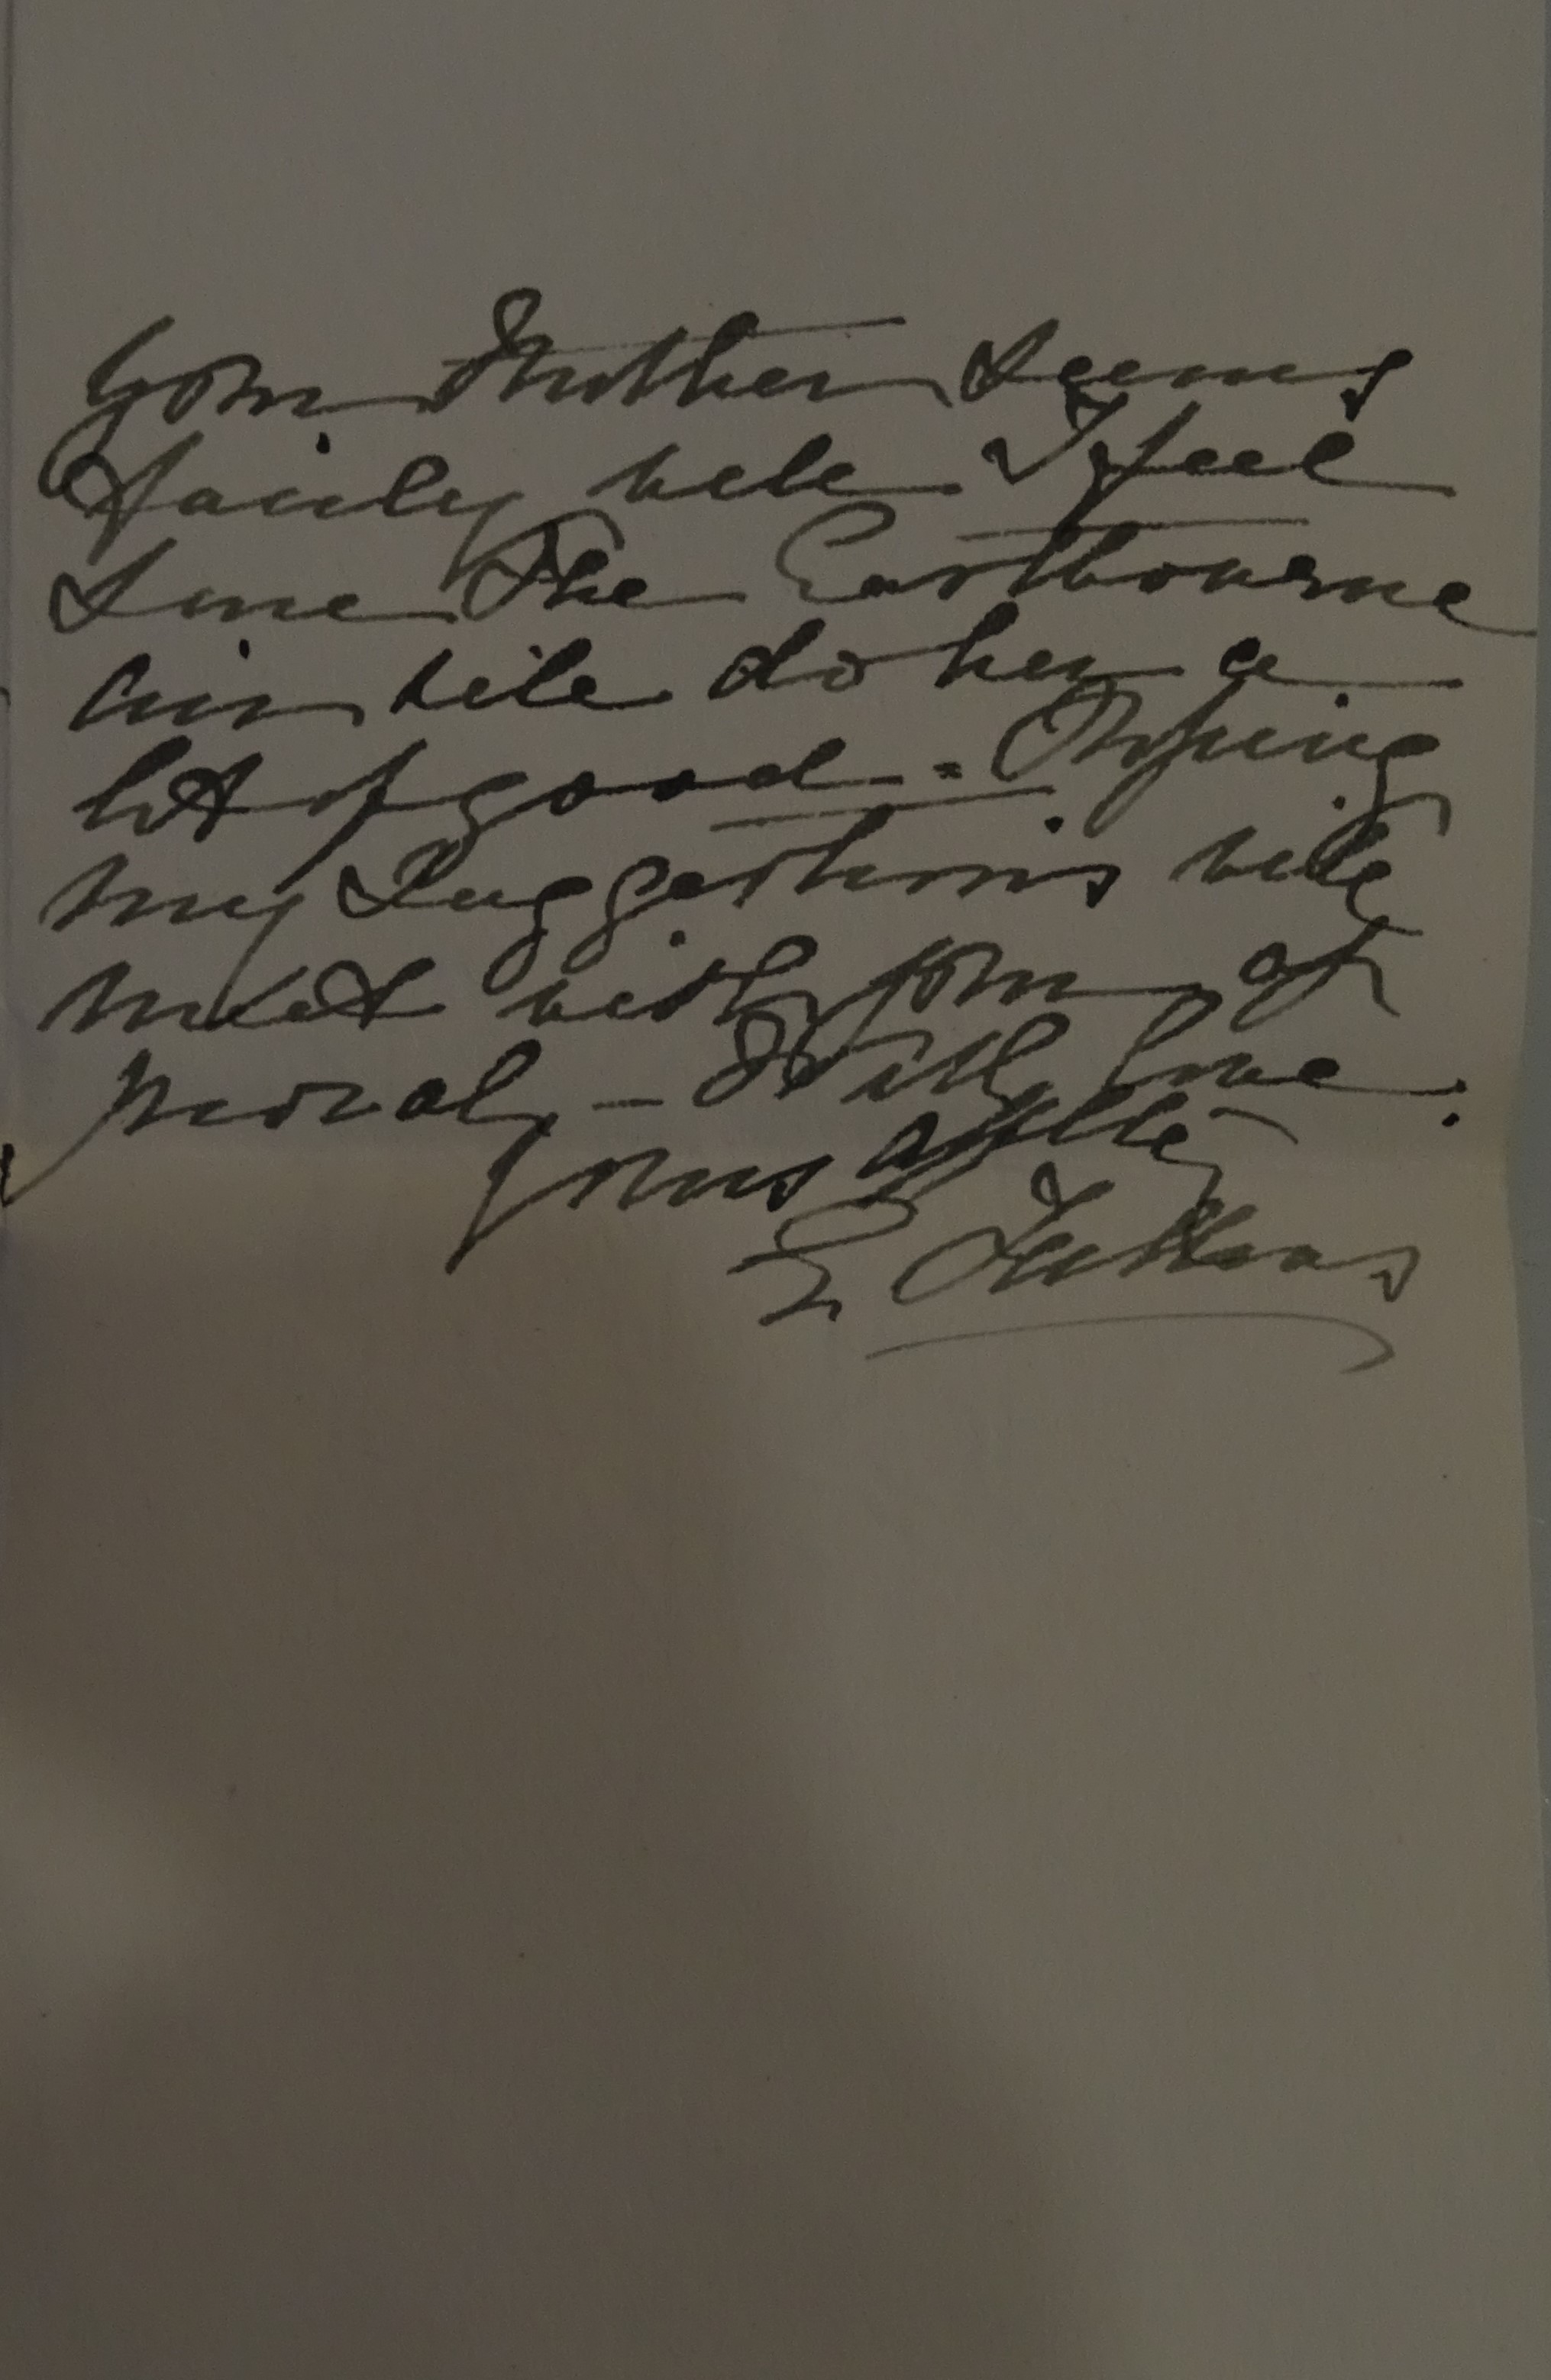 Your Mother seems
fairly well I feel
sure the Eastbourne
air will do her a
lot of good - Hoping
my suggestions will
meet with your ap
proval, - With love.
yours affly